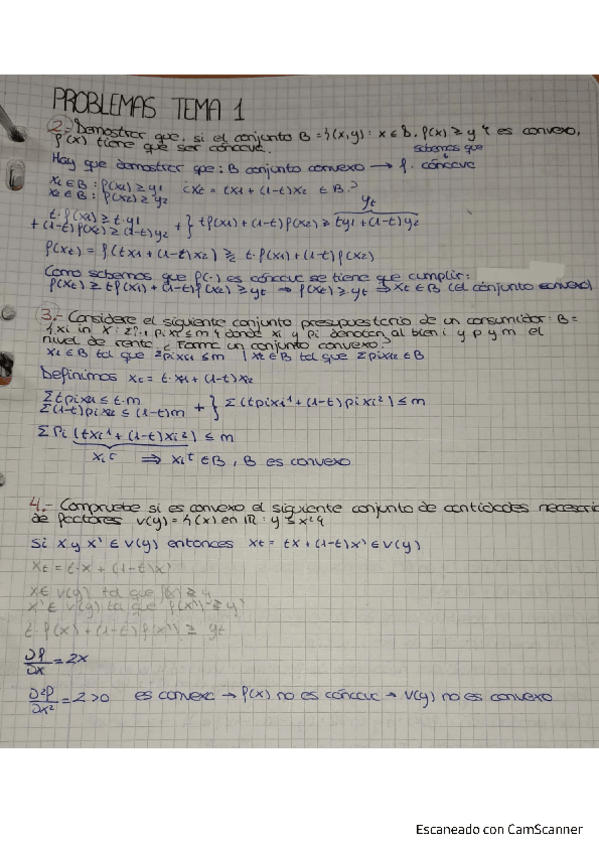 PROBLEMAS TEMA 1
2.- Demostrar que, si el conjunto B = {(x,y): x ∈ B, f(x) ≥ y} es convexo,
f(x) tiene que ser cóncava.
sabemos que
Hay que demostrar que: B conjunto convexo → f. cóncava
x1 ∈ B: f(x1) ≥ y1 ¿xt = tx1 + (1-t)x2 ∈ B?
x2 ∈ B: f(x2) ≥ y2 yt
t·f(x1) ≥ t·y1
+ (1-t)f(x2) ≥ (1-t)y2 + } tf(x1) + (1-t)f(x2) ≥ ty1 + (1-t)y2
f(xt) = f(tx1 + (1-t)x2) ≥ t·f(x1) + (1-t)f(x2)
Como sabemos que f(·) es cóncava se tiene que cumplir:
f(xt) ≥ tf(x1) + (1-t)f(x2) ≥ yt → f(xt) ≥ yt ⇒ xt ∈ B (el conjunto convexo)
3.- Considere el siguiente conjunto presupuestario de un consumidor: B =
{xi in X: Σ pixi ≤ m} donde xi y pi denotan al bien i y p y m el
nivel de renta. ¿Forma un conjunto convexo?
x1 ∈ B tal que Σpixi1 ≤ m | x2 ∈ B tal que Σpixi ∈ B
Definimos xt = t·x1 + (1-t)x2
Σtpixi1 ≤ t·m
Σ(1-t)pixi2 ≤ (1-t)m + } Σ(tpixi¹ + (1-t)pixi²) ≤ m
Σpi(txi¹ + (1-t)xi²) ≤ m
xiᵗ ⇒ xiᵗ ∈ B, B es convexo
4.- Compruebe si es convexo el siguiente conjunto de cantidades necesarias
de factores V(y) = {(x) en IR: y ≤ x²}
Si x y x' ∈ V(y) entonces xt = tx + (1-t)x' ∈ V(y)
xt = t·x + (1-t)x'
x ∈ V(y) tal que f(x) ≥ y
x' ∈ V(y) tal que f(x') ≥ y'
t·f(x) + (1-t)f(x') ≥ yt
∂f/∂x = 2x
∂²f/∂x² = 2 > 0 es convexa → f(x) no es cóncava → V(y) no es convexo
Escaneado con CamScanner